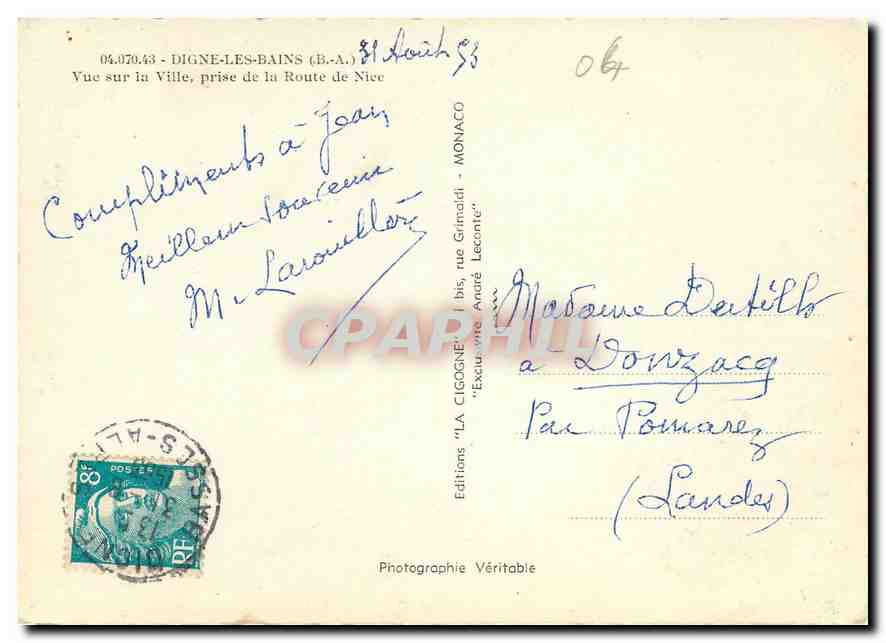 04.070.43 - DIGNE-LES-BAINS (B.-A.) 31 Août 53
Vue sur la Ville, prise de la Route de Nice
04
Compliments à Jean
Meilleur souvenir
M.
Editions "LA CIGOGNE" 1 bis, rue Grimaldi - MONACO
"Exclusivité André Leconte"
CPAPHIL
Madame
à Donzacq
Par Pomarez
(Landes)
8F
POSTES
RF
Photographie Véritable